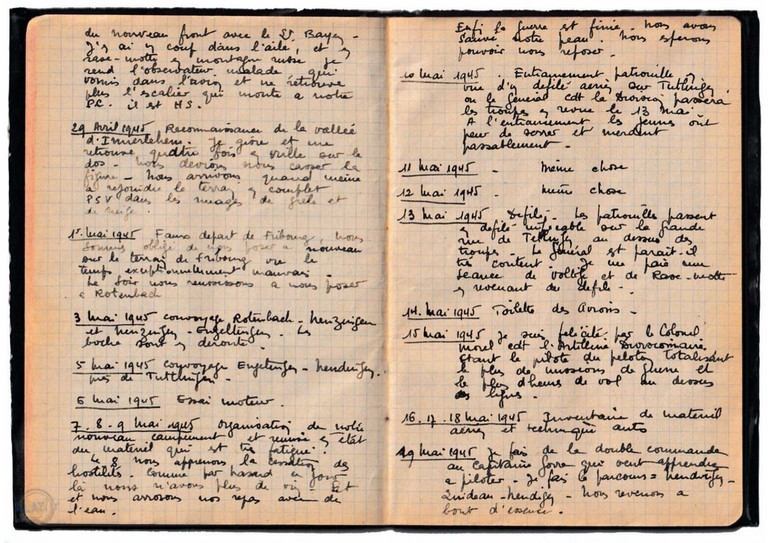 du nouveau front avec le Lt Bayer -
J'y ai y coup dans l'aile, et y
rase-motte y montagne russe je
rend l'observateur malade qui
vomis dans l'avion et ne retrouve
plus l'escalier qui monte a notre
P.C. il est HS.
29 Avril 1945 Reconnaissance de la vallée
d'Immerlehem. Je givre et me
retrouve quatre fois y vrille sur le
dos. Nous devrions nous casser la
figure - Nous arrivons quand même
a rejoindre le terrain y complet
PSV dans les nuages de grele et
de neige.
1er Mai 1945 Faux depart de Fribourg, nous
sommes obligé de nous poser a nouveau
sur le terrain de Fribourg vu le
temps exceptionnellement mauvais -
Le soir nous reussissons a nous poser
a Rotenbach
3 Mai 1945 convoyage Rotenbach - Nenzingen
et Nenzingen - Engeltingen. Les
boche sont y deroute.
5 Mai 1945 Convoyage Engeltingen - Nendingen
près de Tuttlingen -
6 Mai 1945 Essai moteur.
7 - 8 - 9 Mai 1945 Organisation de notre
nouveau campement et remise y état
du materiel qui est très fatigué.
Le 8 nous apprenons la cessation des
hostilités. Comme par hasard ce jour
là nous n'avons plus de vin = Et
et nous arrosons nos repas avec de
l'eau.
Enfin la Guerre est finie. Nous avons
sauvé notre peau. Nous esperons
pouvoir nous reposer.
10 Mai 1945. Entrainement patrouille y
vue d'y defilé aerien sur Tuttlingen
ou le General cdt la Division passera
les troupes y revue le 13 Mai.
A l'entrainement les jeunes ont
peur de serrer et merdent
passablement -
11 Mai 1945 - Même chose
12 Mai 1945 - même chose
13 Mai 1945 Defilés - Les patrouilles passent
y defilé impecable sur la grande
rue de Tuttlingen au dessus des
troupes - Le Général est parait-il
très content - Je me paie une
séance de voltige et de Rase-motte
y revenant du defilé -
14. Mai 1945 Toilette des Avions -
15 Mai 1945 Je suis felicité par le Colonel
Morel cdt l'Artillerie Divisionnaire
étant le pilote du peloton totalisant
le plus de missions de Guerre et
le plus d'heures de vol au dessus
des lignes.
16. 17. 18 Mai 1945 Inventaire de materiel
aérien et technique auto
19 Mai 1945 Je fais de la double commande
au Capitaine qui veut apprendre
a piloter - Je fais le parcours = Nendingen -
Lindeau - Nendingen - Nous revenons a
bout d'essence -